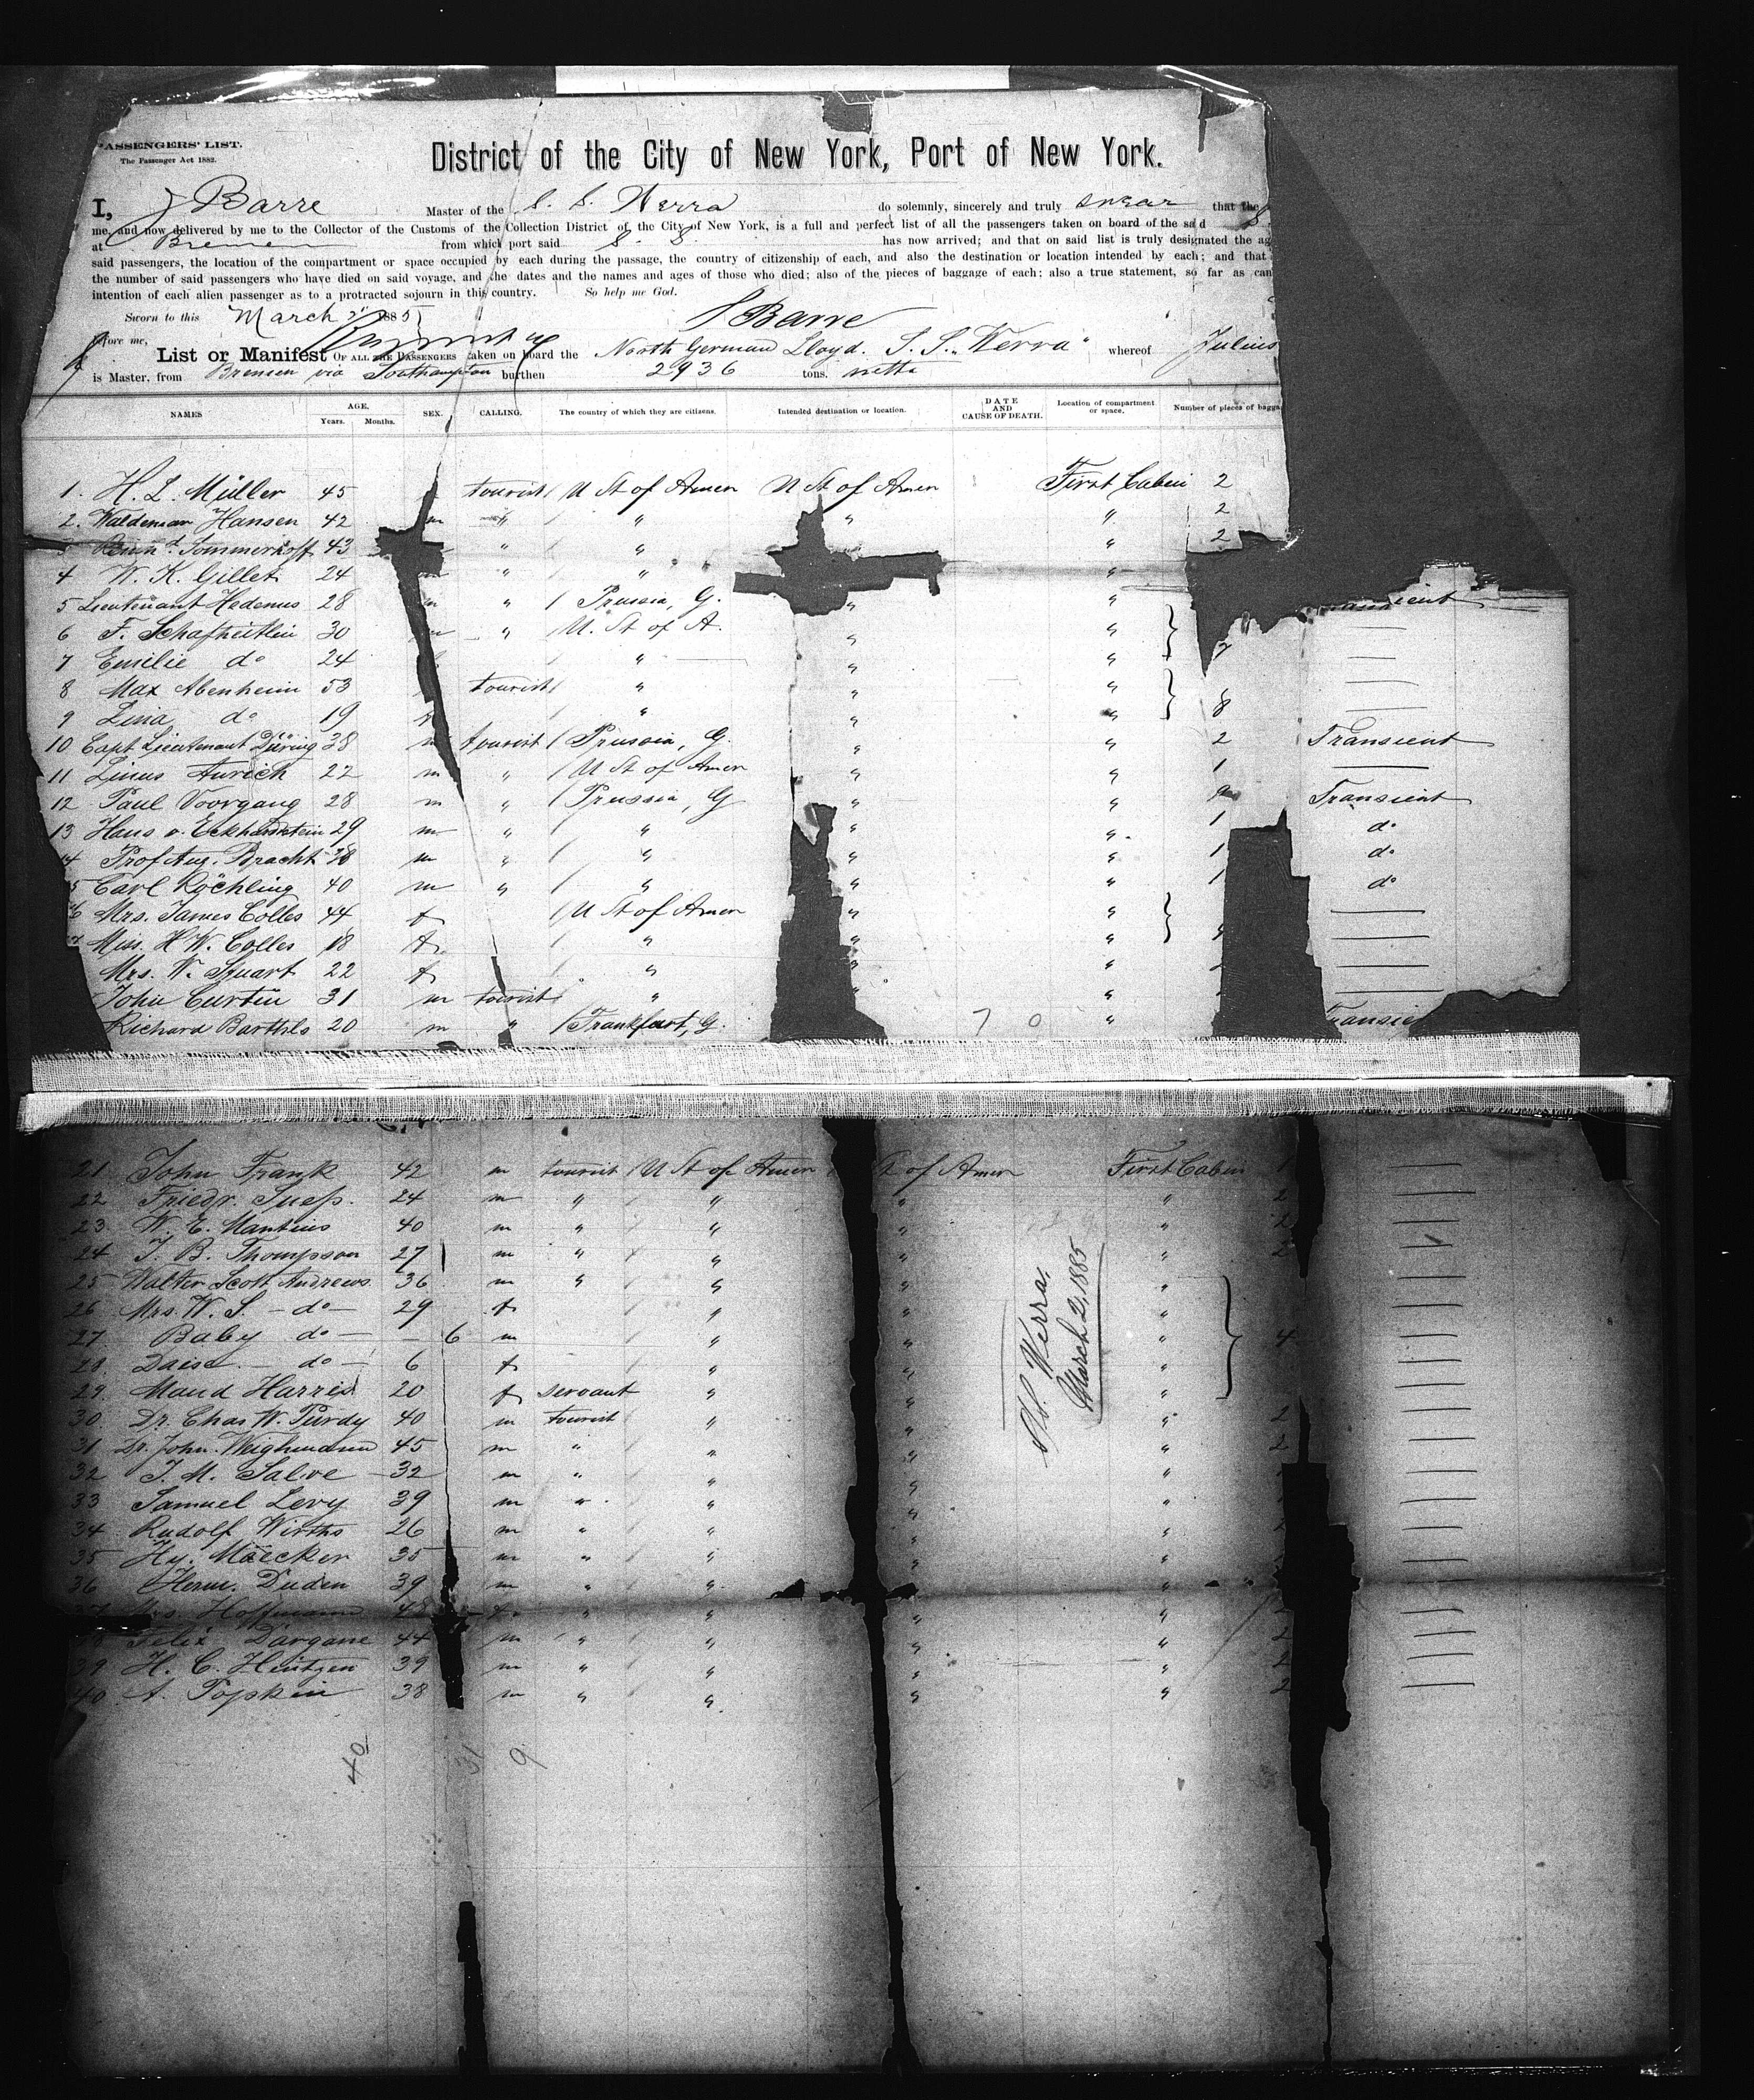 PASSENGERS' LIST.
The Passenger Act 1882.
District of the City of New York, Port of New York.
I, J Barre Master of the S. S. Werra do solemnly, sincerely and truly swear that the
me, and now delivered by me to the Collector of the Customs of the Collection District of the City of New York, is a full and perfect list of all the passengers taken on board of the said S.
at Bremen from which port said S. S. has now arrived; and that on said list is truly designated the ag
said passengers, the location of the compartment or space occupied by each during the passage, the country of citizenship of each, and also the destination or location intended by each; and that
the number of said passengers who have died on said voyage, and the dates and the names and ages of those who died; also of the pieces of baggage of each; also a true statement, so far as can
intention of each alien passenger as to a protracted sojourn in this country. So help me God.
Sworn to this March 2" 1885 J Barre
before me,
List or Manifest OF ALL THE PASSENGERS taken on board the North German Lloyd. S. S. „Werra" whereof Julius
is Master, from Bremen via Southampton burthen 2936 tons. netto
NAMES AGE. Years. Months. SEX. CALLING. The country of which they are citizens. Intended destination or location. DATE AND CAUSE OF DEATH. Location of compartment or space. Number of pieces of bagga
1. H. L. Müller 45 tourist U St of Amer U St of Amer First Cabin 2
2. Waldemar Hansen 42 m " " " " 2
3 Sommerhoff 43 " " " 2
4 W. K. Gillet 24 m " " "
5 Lieutenant Hedenus 28 m " Prussia, G. " " ansient
6 F. Schafheitlin 30 m " U. St of A. " "
7 Emilie do 24 " " " 7
8 Max Abenheim 53 tourist " " "
9 Lina do 19 " " " 8
10 Capt. Lieutenant Düring 38 m tourist Prussia, G. " " 2 Transient
11 Linus Aurich 22 m " U St of Amer " " 1
12 Paul Voorgang 28 m " Prussia, G " " Transient
13 Hans v. Eckhardstein 29 m " " " " 1 do
14 Prof Aug. Bracht m " " " " 1 do
5 Carl Röchling 40 m " " " " 1 do
6 Mrs. James Colles 44 f U St of Amer " "
7 Miss. H W. Colles 18 f " " "
Mrs. W. Stuart 22 f " " "
John Curtin 31 m tourist " " "
Richard Barthels 20 m " Frankfurt, G. " ransie
7 0
21 John Frank 42 m tourist U St of Amer St of Amer First Cabin 1
22 Friedr. Suess. 24 m " " " " 2
23 W. E. Mantius 40 m " " " " 2
24 J. B. Thompson 27 m " " " " 2
25 Walter Scott Andrews 36 m " " " "
26 Mrs. W. S. - do - 29 f " " "
27 Baby do - - 6 m " " " 4
28 - do - 6 f " " "
29 Maud Harris 20 f servant " " "
30 Dr. Chas W. Purdy 40 m tourist " " " 2
31 Dr. John Weighmann 45 m " " " " 2
32 32 m " " " "
33 Samuel Levy 39 m " " " "
34 Rudolf Wirths 26 m " " " "
35 Hy. Maecker 35 m " " " "
36 Herm. Duden 39 m " " " "
37 Mrs. Hoffmann 48 f " " " " 2
38 Felix Dargane 44 m " " " " 2
39 H. C. Hintzen 39 m " " " " 2
40 A. Popkin 38 m " " " " 2
Werra.
March 2, 1885
40 31 9